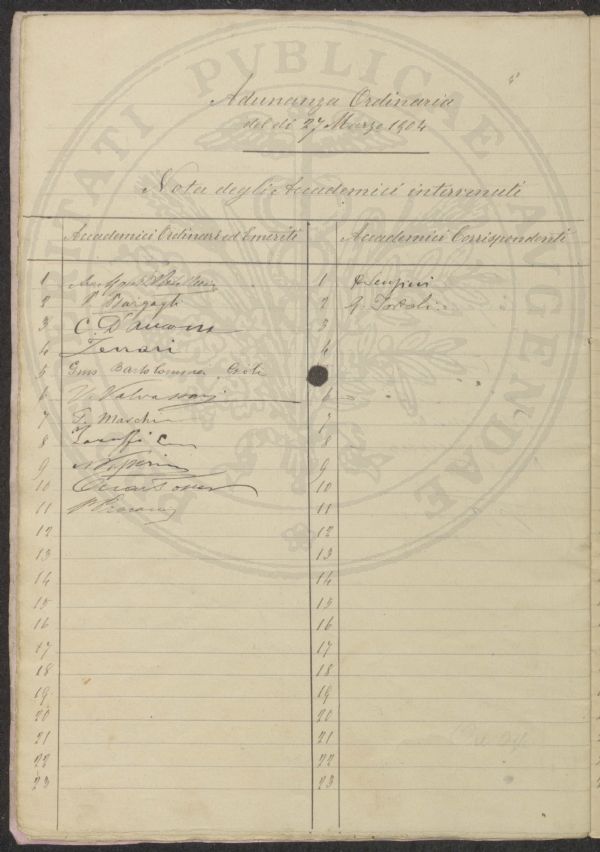 PROSPERITATI PUBLICAE AUGENDAE
5
Adunanza Ordinaria
del dì 27 Marzo 1904
Nota degli Accademici intervenuti
Accademici Ordinari ed Emeriti
Accademici Corrispondenti
1
1
2 P. Bargagli
2
3 C. D'Ancona
3
4 Ferrari
4
5 Bartolommei Gioli
6 V. Valvassori
6
7 F. Maschi
7
8
8
9
9
10
10
11
11
12
12
13
13
14
14
15
15
16
16
17
17
18
18
19
19
20
20
21
21
22
22
23
23